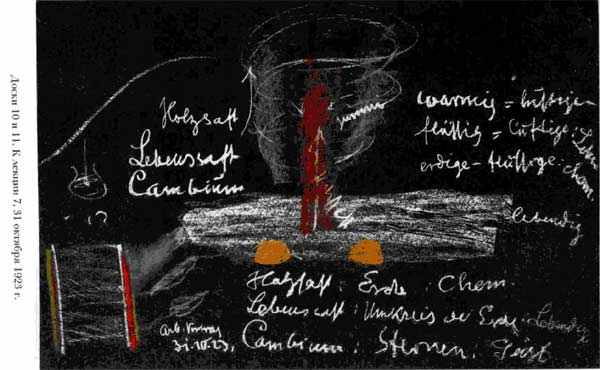 Доски 10 и 11, К лекции 7, 31 октября 1923 г.
Holzsaft
Lebenssaft
Cambium
warmig = luftige:
flüssig = luftige: Leben
erdige - flüssige: chem.
lebendig
Holzsaft : Erde : Chem.
Lebenssaft : Umkreis der Erde : Lebendig
Cambium : Sternen : Geist
Arb. Vortrag
31.10.23.